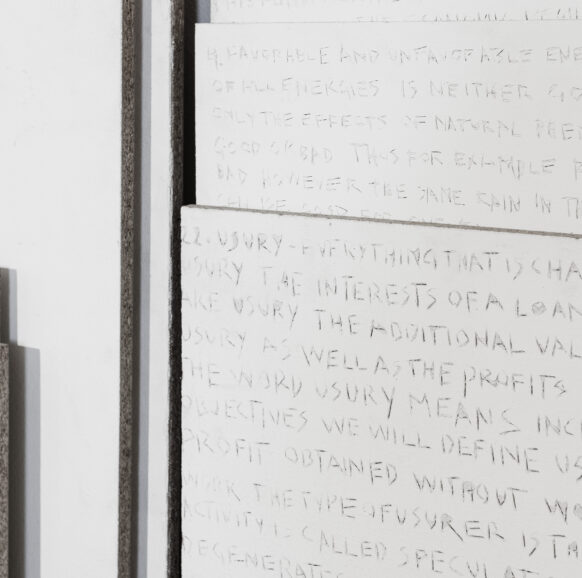 9. FAVORABLE AND UNFAVORABLE ENE
OF ALL ENERGIES IS NEITHER GO
ONLY THE EFFECTS OF NATURAL
GOOD OR BAD THUS FOR EXAMPLE
BAD HOWEVER THE SAME RAIN IN TH
22. USURY - EVERYTHING THAT IS CHA
USURY THE INTERESTS OF A LOAN
ARE USURY THE ADDITIONAL VAL
USURY AS WELL AS THE PROFITS
THE WORD USURY MEANS INC
OBJECTIVES WE WILL DEFINE US
PROFIT OBTAINED WITHOUT WO
WORK THE TYPE OF USURER IS THA
ACTIVITY IS CALLED SPECULAT
DEGENERATE